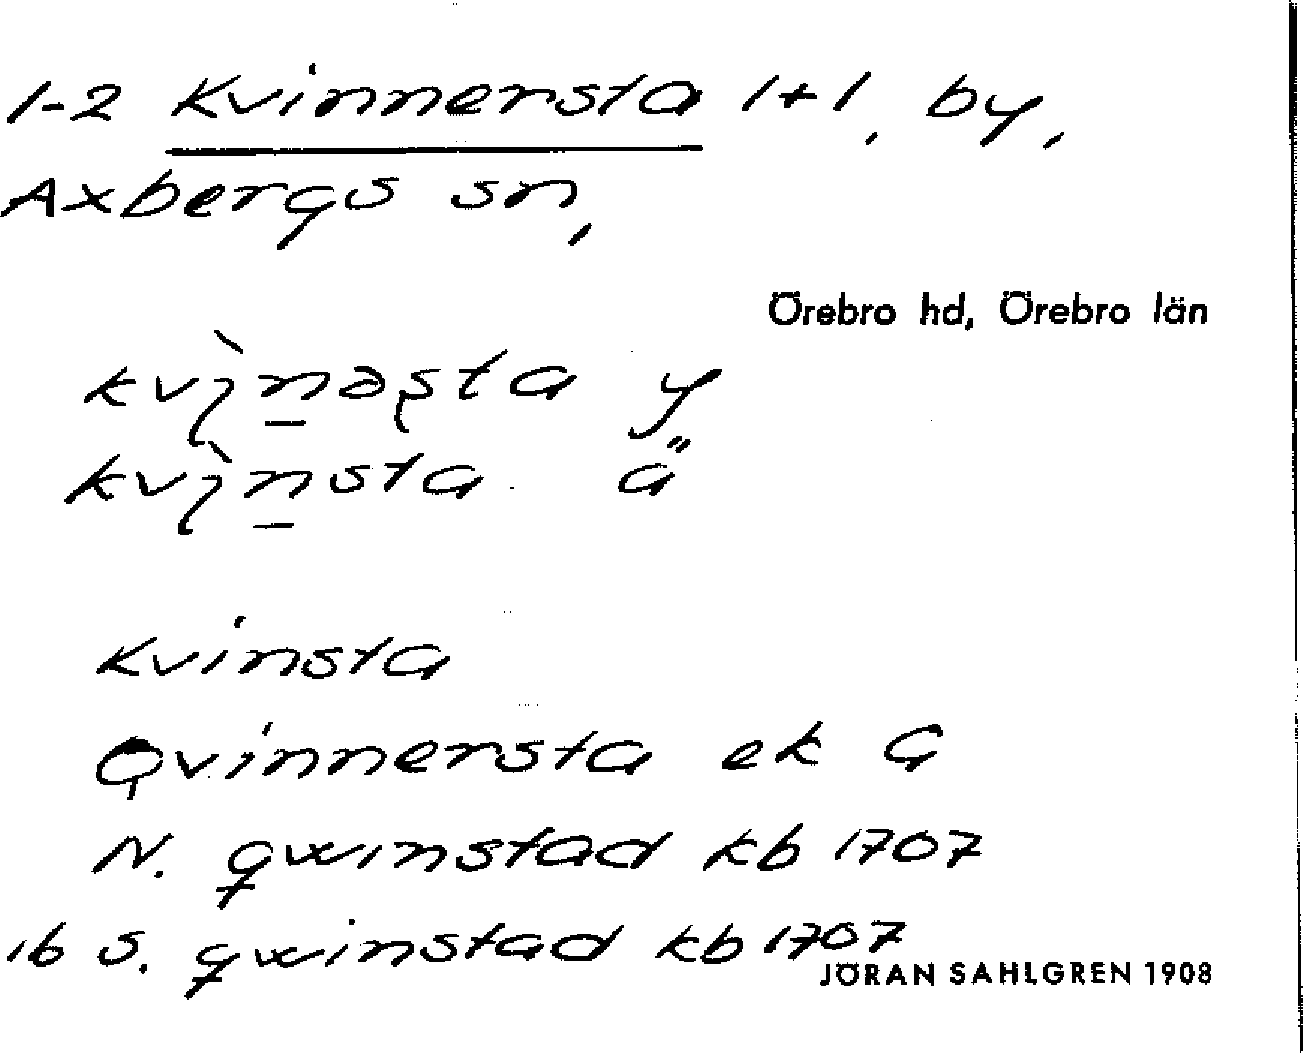 1-2 Kvinnersta 1+1, by,
Axbergs sn,
Örebro hd, Örebro län
kvı̨̀n̲əşta y
kvı̨̀n̲sta ä
Kvinsta
Qvinnersta ek G
N. qwinstad kb 1707
1b S. qwinstad kb 1707
JÖRAN SAHLGREN 1908